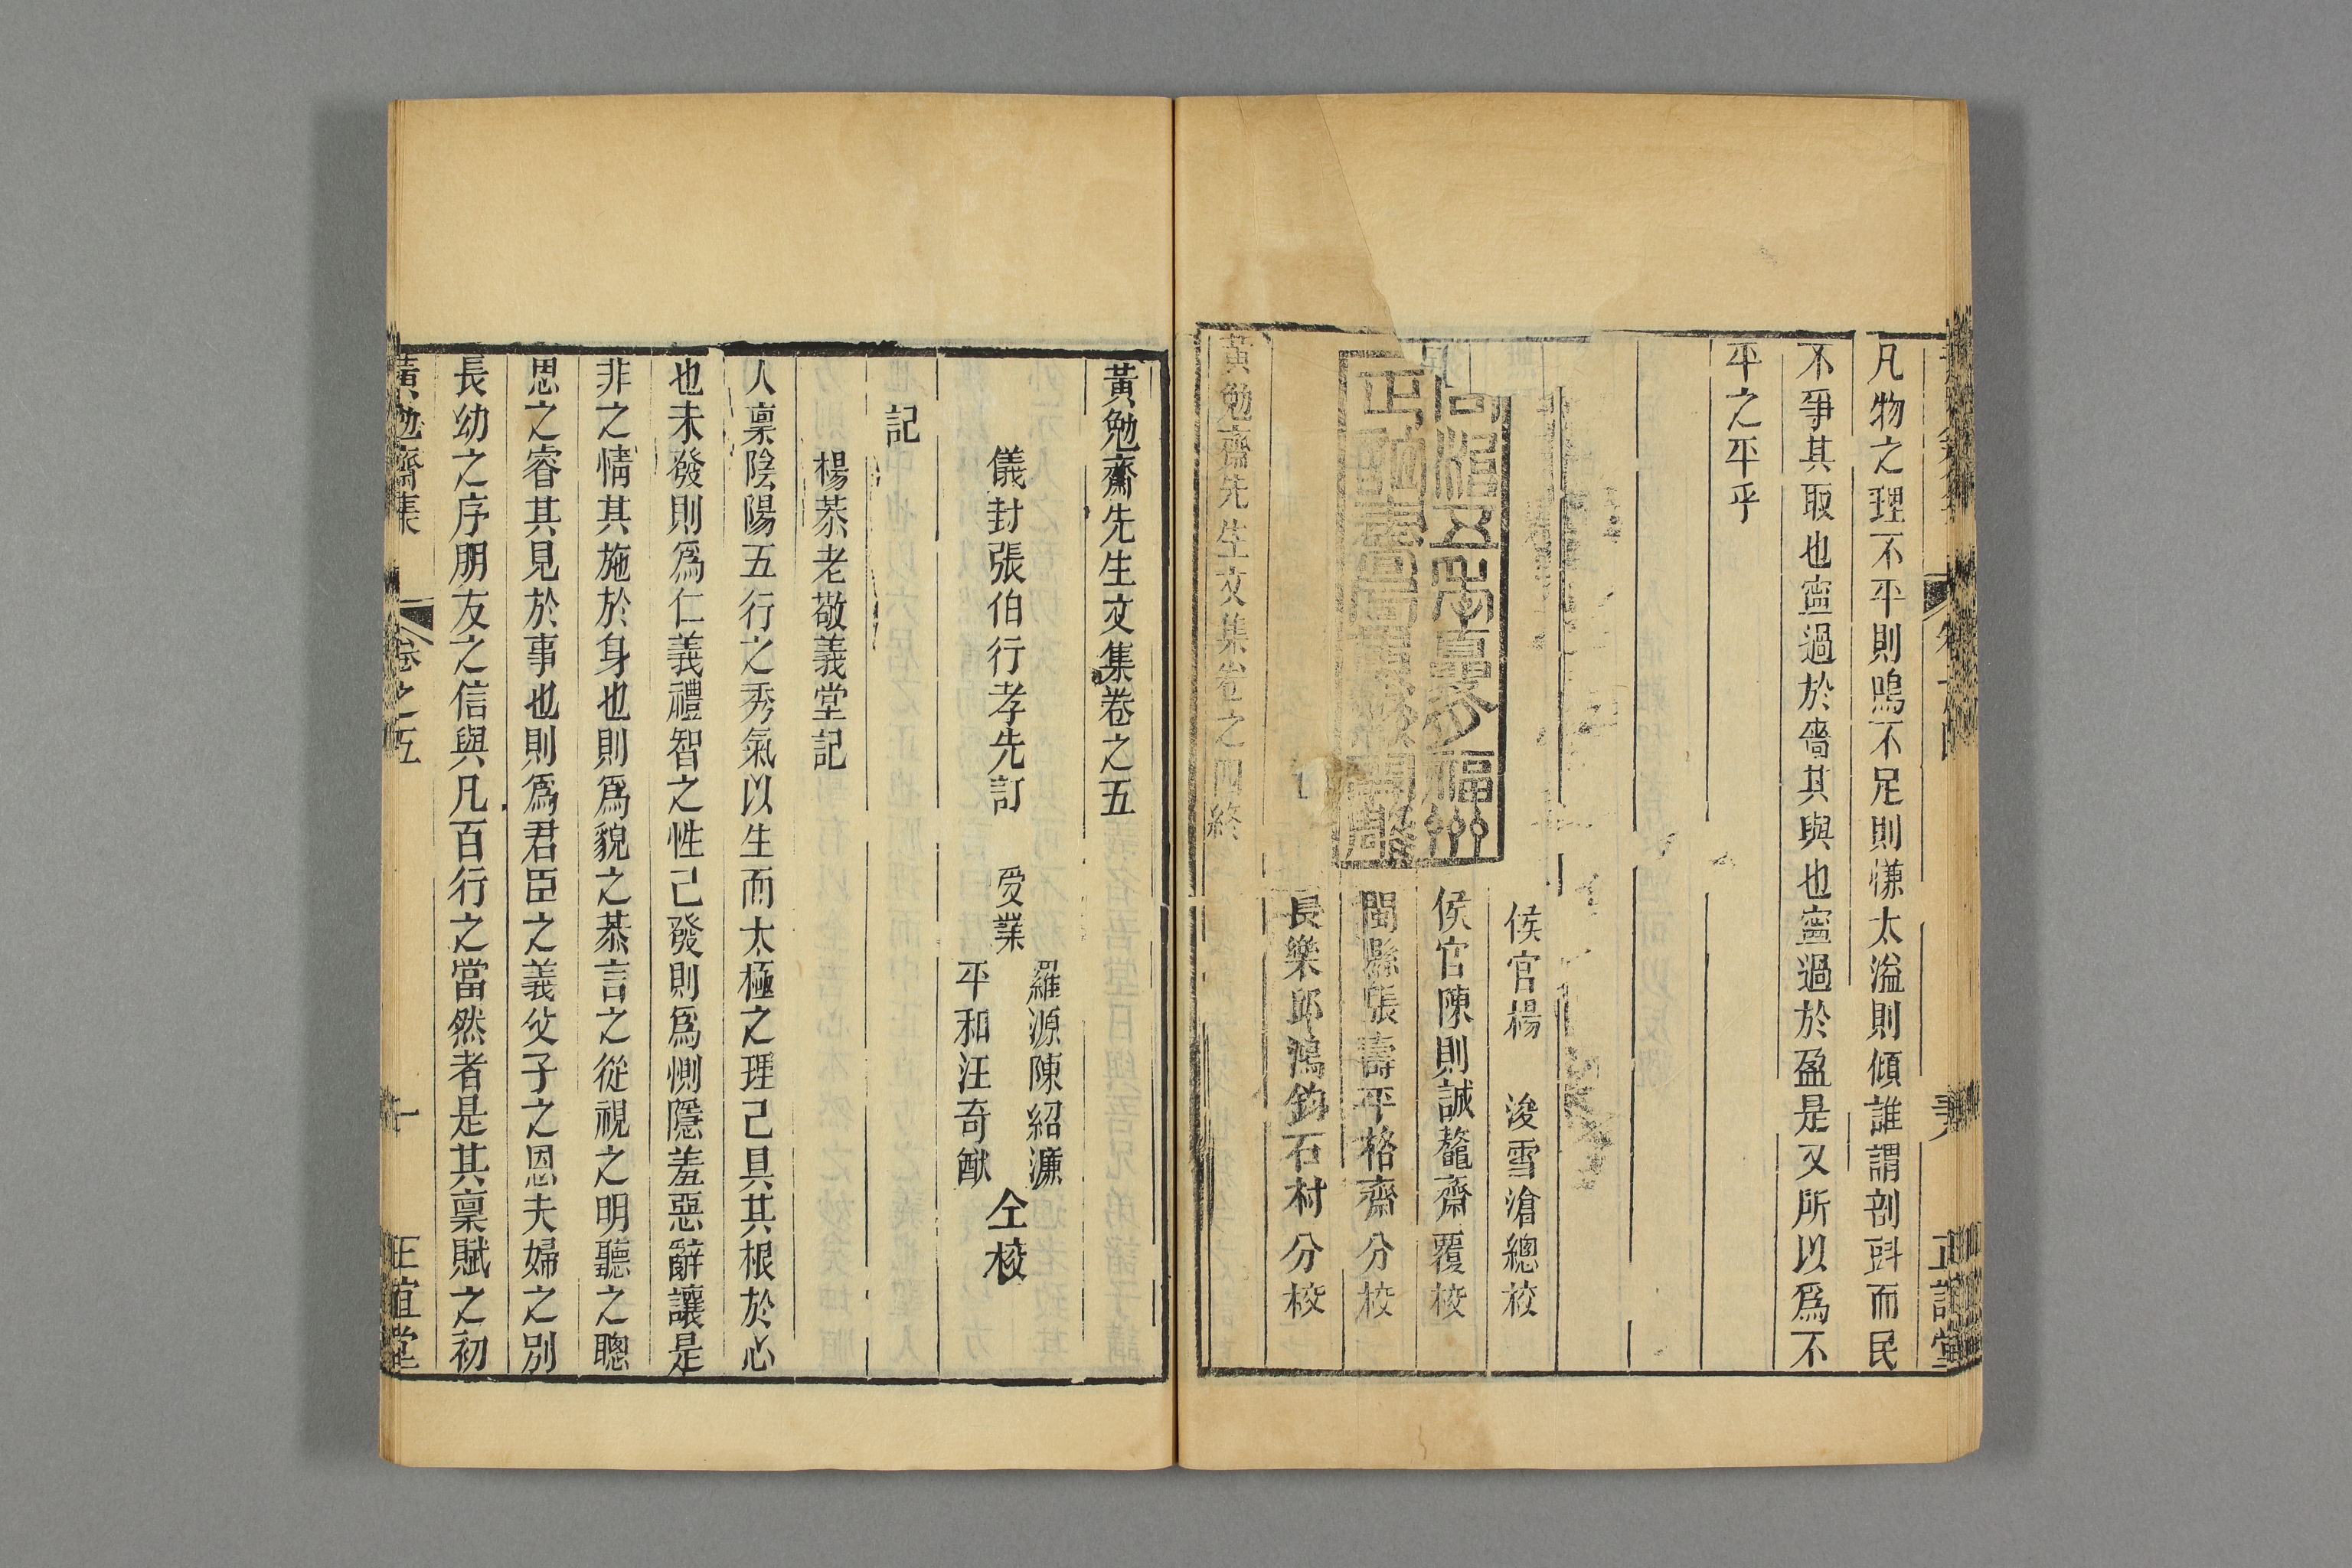 凡物之理不平則鳴不足則慊太溢則傾誰謂剖斟而民
不爭其取也寍過於嗇其與也寍過於盈是又所以爲不
平之平乎
侯官楊 浚雪滄總校
侯官陳則誠鼇齋覆校
閩縣張壽平格齋分校
長樂邱鴻鈞石村分校
同治五季嘉平福州
正誼書局
黃勉齋先生文集卷之四終
黃勉齋先生文集卷之五
儀封張伯行孝先訂 受業
羅源陳紹濂
平和汪奇猷
仝校
記
楊恭老敬義堂記
人禀陰陽五行之秀氣以生而太極之理已具其根於心
也未發則爲仁義禮智之性已發則爲惻隱羞惡辭讓是
非之情其施於身也則爲貌之恭言之從視之明聽之聰
思之睿其見於事也則爲君臣之義父子之恩夫婦之別
長幼之序朋友之信與凡百行之當然者是其禀賦之初
黃勉齋集 卷之五 一 正誼堂